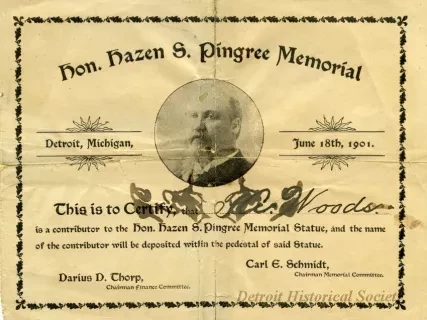 Hon. Hazen S. Pingree Memorial
Detroit, Michigan, June 18th, 1901.
This is to Certify, that Woods
is a contributor to the Hon. Hazen S. Pingree Memorial Statue, and the name
of the contributor will be deposited within the pedestal of said Statue.
Darius D. Thorp,
Chairman Finance Committee.
Carl E. Schmidt,
Chairman Memorial Committee.
Detroit Historical Society